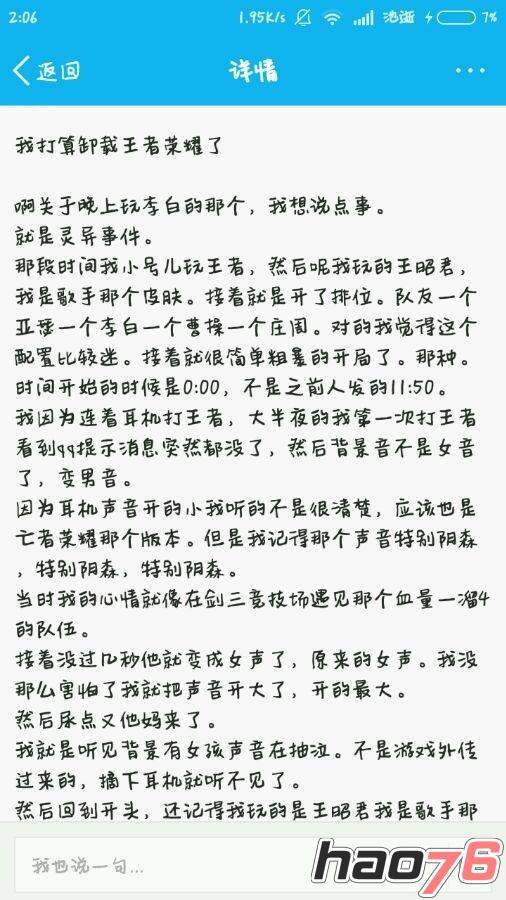 2:06
1.95K/s
沲逝
7%
返回
详情
我打算卸载王者荣耀了
啊关于晚上玩李白的那个，我想说点事。
就是灵异事件。
那段时间我小号儿玩王者，然后呢我玩的王昭君，
我是歌手那个皮肤。接着就是开了排位。队友一个
亚瑟一个李白一个曹操一个庄周。对的我觉得这个
配置比较迷。接着就很简单粗暴的开局了。那种。
时间开始的时候是0:00，不是之前人发的11:50。
我因为连着耳机打王者，大半夜的我第一次打王者
看到qq提示消息突然都没了，然后背景音不是女音
了，变男音。
因为耳机声音开的小我听的不是很清楚，应该也是
亡者荣耀那个版本。但是我记得那个声音特别阴森
，特别阴森，特别阴森。
当时我的心情就像在剑三竞技场遇见那个血量一溜4
的队伍。
接着没过几秒他就变成女声了，原来的女声。我没
那么害怕了我就把声音开大了，开的最大。
然后尿点又他妈来了。
我就是听见背景有女孩声音在抽泣。不是游戏外传
过来的，摘下耳机就听不见了。
然后回到开头，还记得我玩的是王昭君我是歌手那
我也说一句...
hao76